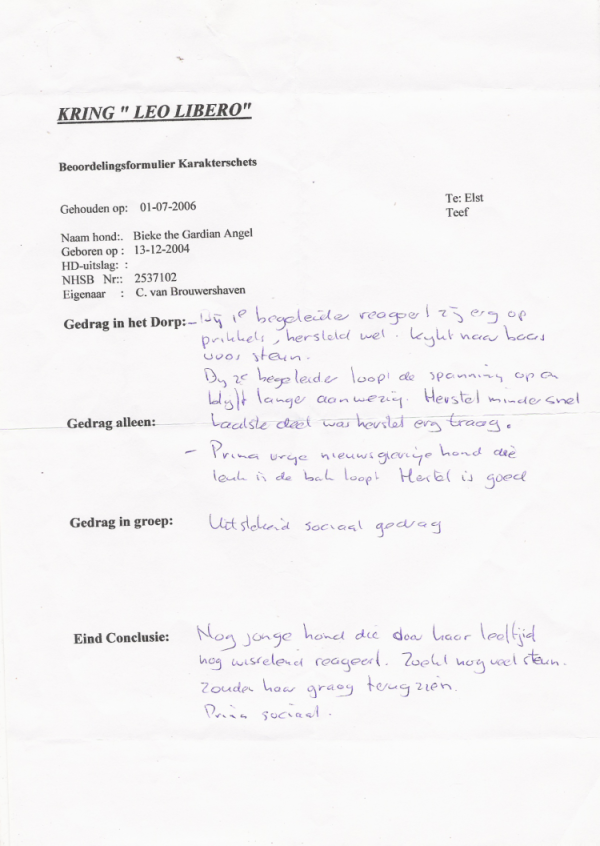 KRING " LEO LIBERO"
Beoordelingsformulier Karakterschets
Gehouden op: 01-07-2006
Te: Elst
Teef
Naam hond:. Bieke the Gardian Angel
Geboren op : 13-12-2004
HD-uitslag: :
NHSB Nr:: 2537102
Eigenaar : C. van Brouwershaven
Gedrag in het Dorp:- Bij 1e begeleider reageert zij erg op
prikkels, hersteld wel. Kijkt naar baas
voor steun.
By 2e begeleider loopt de spanning op en
blijft langer aanwezig. Herstel minder snel
Gedrag alleen: Laatste deel was herstel erg traag.
- Prima vrije nieuwsgierige hond die
leuk in de bak loopt Herstel is goed
Gedrag in groep: Uitstekend sociaal gedrag
Eind Conclusie: Nog jonge hond die door haar leeftijd
nog wisselend reageert. Zoekt nog veel steun.
Zouden haar graag terugzien.
Prima sociaal.